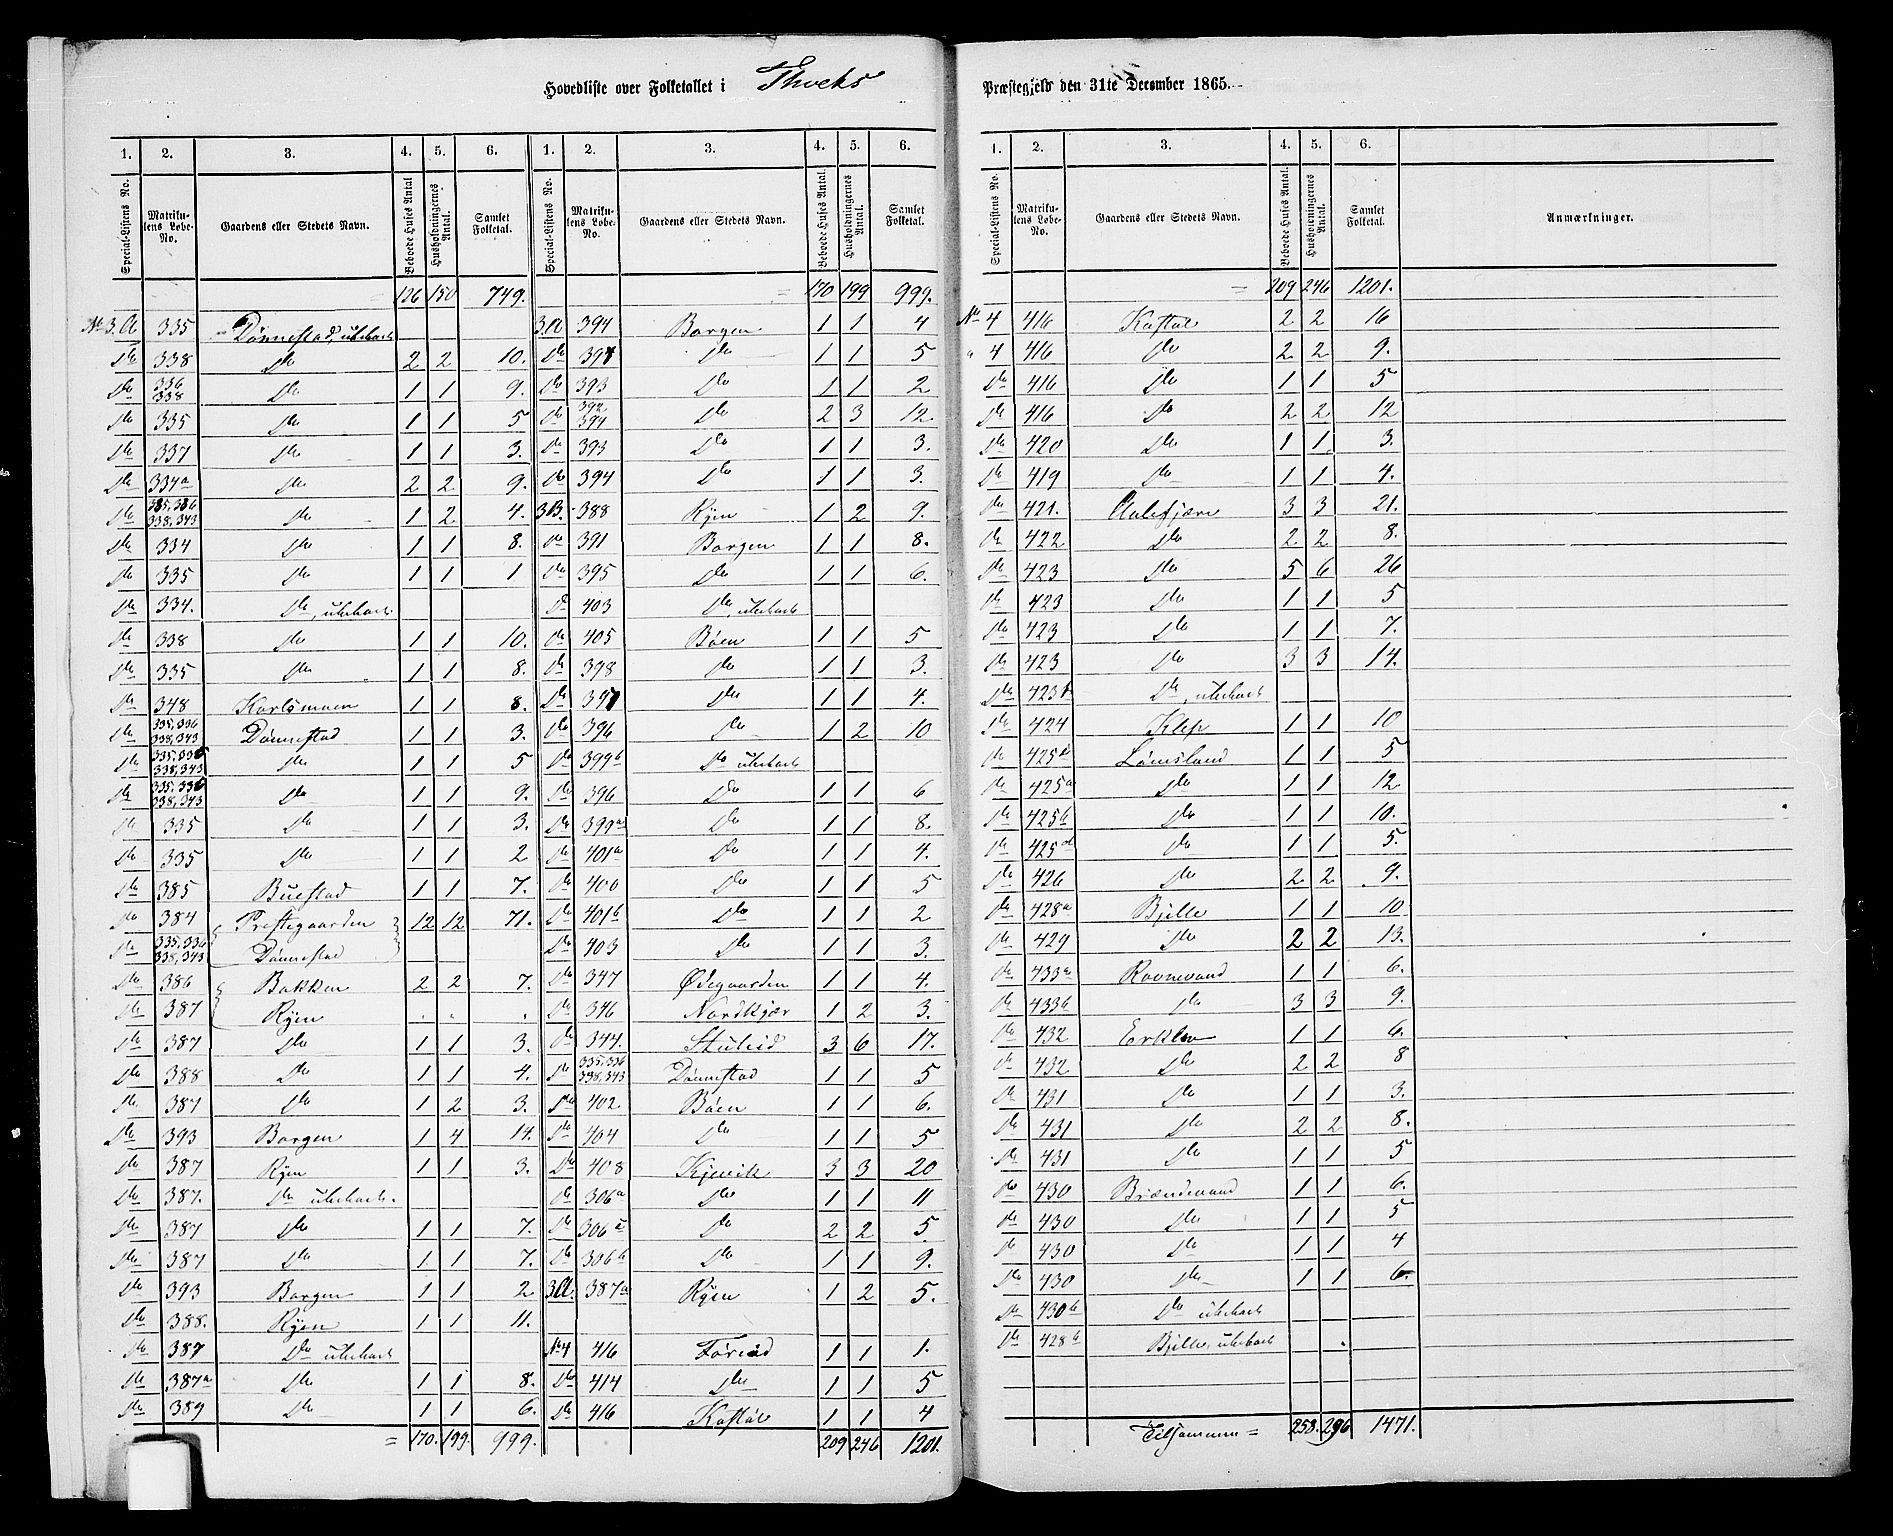 Hovedliste over Folketallet i Thveds Præstegjeld den 31te December 1865.
1. 2. 3. 4. 5. 6. 1. 2. 3. 4. 5. 6.
Special-Listens No. Matrikulens Løbe-No. Gaardens eller Stedets Navn. Beboede Huses Antal Husholdningernes Antal. Samlet Folketal. Special-Listens No. Matrikulens Løbe-No. Gaardens eller Stedets Navn. Beboede Huses Antal. Husholdningernes Antal. Samlet Folketal.
126 150 749. = 170 199 999.
No 3.A 335 Dønnestad, ubeboet 3.A 394 Borgen 1 1 4
Do 338 Do 2 2 10. Do 397 Do 1 1 5
Do 336 338 Do 1 1 9. Do 393 Do 1 1 2
Do 335 Do 1 1 5 Do 392 394 Do 2 3 12.
Do 337 Do 1 1 3. Do 393 Do 1 1 3.
Do 334a Do 2 2 9. Do 394 Do 1 1 3.
Do 335, 336 338, 343 Do 1 2 4. 3B. 388 Ryen 1 2 9.
Do 334 Do 1 1 8. Do 391 Borgen 1 1 8.
Do 335 Do 1 1 1 Do 395 Do 1 1 6.
Do 334. Do, ubeboet Do 403 Do, ubeboet
Do 338 Do 1 1 10. Do 405 Bøen 1 1 5
Do 335 Do 1 1 8. Do 398 Do 1 1 3.
Do 348 Karlsmoen 1 1 8. Do 397 Do 1 1 4.
Do 335, 336 338, 343 Dønnestad 1 1 3. Do 396 Do 1 2 10
Do 335, 336 338, 343 Do 1 1 5 Do 399b Do ubeboet
Do 335, 336 338, 343 Do 1 1 9. Do 396 Do 1 1 6
Do 335 Do 1 1 3. Do 399a Do 1 1 8.
Do 335 Do 1 1 2 Do 401a Do 1 1 4.
Do 385 Buestad 1 1 7. Do 400 Do 1 1 5
Do 384 Prestegaarden 12 12 71. Do 401b Do 1 1 2
Do 335, 336 338, 343 Dønnestad Do 403 Do 1 1 3.
Do 386 Bakken 2 2 7. Do 347 Ødegaarden 1 1 4.
Do 387 Ryen . . . Do 346 Nordkjær 1 2 3.
Do 387 Do 1 1 3. Do 344. Stulisd 3 6 17.
Do 388 Do 1 1 4. Do 335, 336 338, 343 Dønnestad 1 1 5
Do 387 Do 1 2 3. Do 402 Bøen 1 1 6.
Do 393 Borgen 1 4 14. Do 404 Do 1 1 5
Do 387 Ryen 1 1 3. Do 408 Kjevik 3 3 20
Do 387. Do ubeboet. Do 306a Do 1 1 11
Do 387 Do 1 1 7. Do 306c Do 2 2 5.
Do 387 Do 1 1 7. Do 306b Do 1 1 9.
Do 393 Borgen 1 1 2 3.A. 387a Ryen 1 2 5.
Do 388. Ryen 1 1 11.
Do 387 Do ubeboet No 4 416 Foreid 1 1 1.
Do 387a Do 1 1 8. Do 414 Do 1 1 5
Do 389 Do 1 1 6. Do 416 Kostøl 1 1 4
= 170. 199. 999. 209 246 1201.
1. 2. 3. 4. 5. 6.
Special-Listens No. Matrikulens Løbe-No. Gaardens eller Stedets Navn. Beboede Huses Antal. Husholdningernes Antal. Samlet Folketal. Anmærkninger.
= 209 246 1201.
No 4 416 Kostøl 2 2 16
" 4 416 Do 2 2 9.
Do 416 Do 1 1 5
Do 416 Do 2 2 12
Do 420 Do 1 1 3.
Do 419 Do 1 1 4.
Do 421. Aalefjære 3 3 21.
Do 422 Do 2 2 8.
Do 423 Do 5 6 26
Do 423 Do 1 1 5
Do 423 Do 1 1 7.
Do 423 Do 3 3 14.
Do 423b Do, ubeboet
Do 424 Klep 1 1 10
Do 425c Lømsland 1 1 5
Do 425a Do 1 1 12
Do 425b Do 1 1 10.
Do 425d Do 1 1 5.
Do 426 Do 2 2 9.
Do 428a Bjelle 1 1 10
Do 429 Do 2 2 13.
Do 433a Ravnevand 1 1 6.
Do 433b Do 3 3 9.
Do 432 Erklev 1 1 6.
Do 432 Do 2 2 8
Do 431 Do 1 1 3.
Do 431 Do 2 2 8.
Do 431 Do 1 1 5
Do 430 Brændevand 1 1 6.
Do 430 Do 1 1 5
Do 430 Do 1 1 4
Do 430 Do 1 1 6.
Do 430b Do ubeboet
Do 428b Bjelle, ubeboet
Tilsammen = 258. 296 1471.